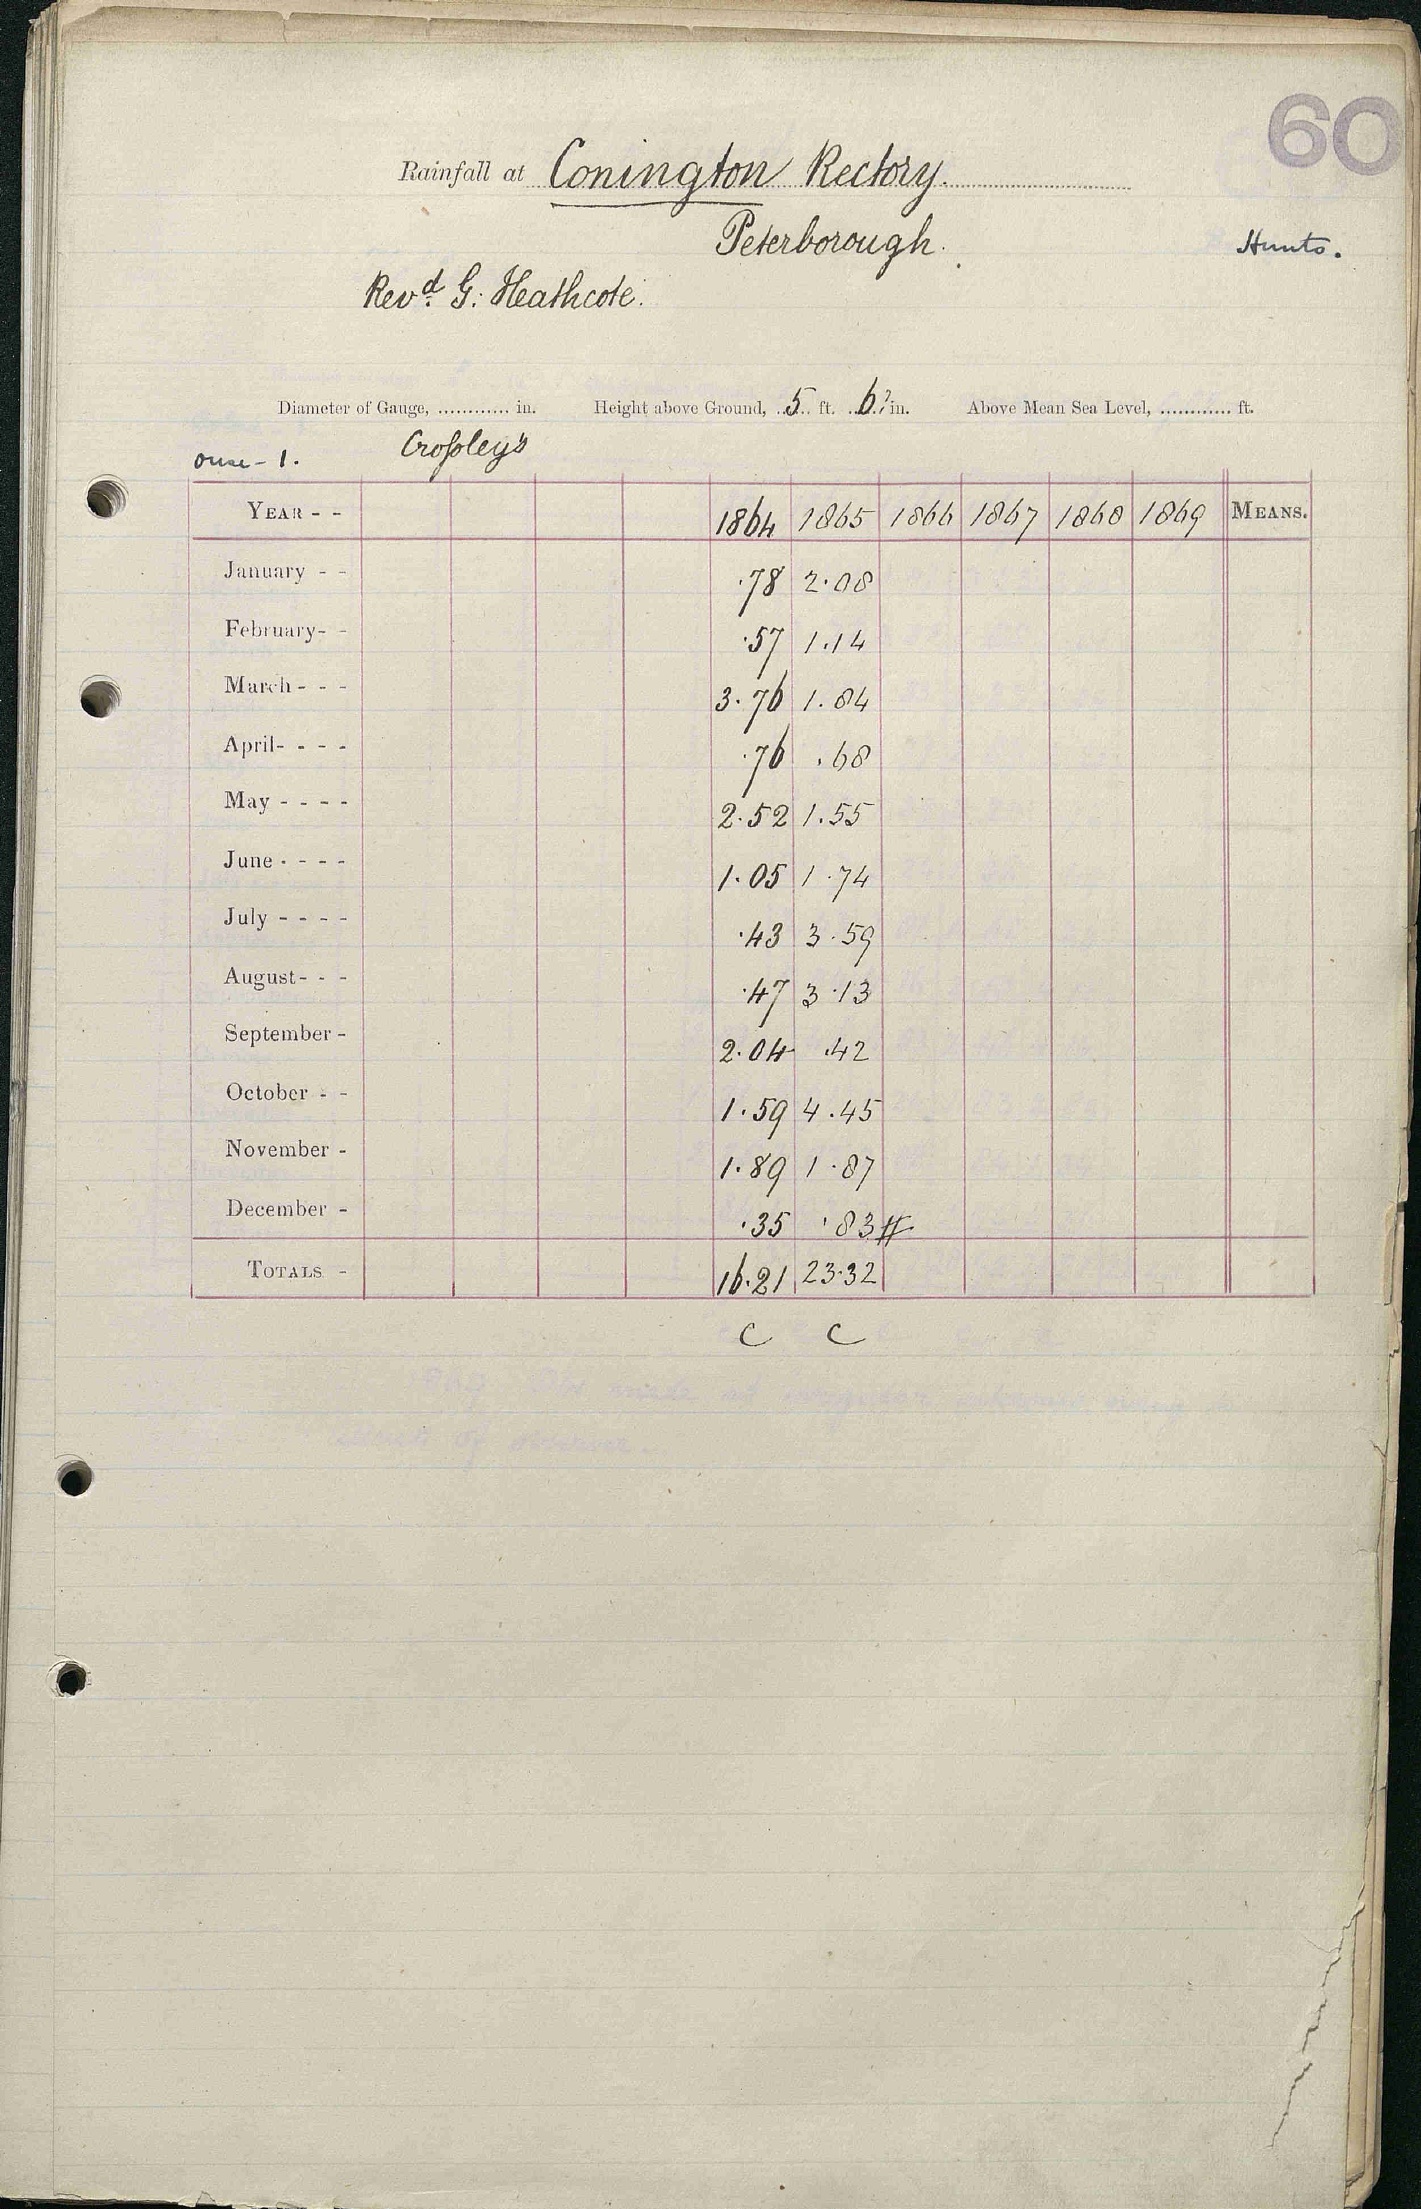 60
Rainfall at Conington Rectory.
Peterborough. Hunts.
Revd. G. Heathcote.
Diameter of Gauge, ............ in. Height above Ground, 5 ft. 6? in. Above Mean Sea Level, ............ ft.
Crossley's
Ouse - 1.
YEAR - - 1864 1865 1866 1867 1868 1869 MEANS.
January - - .78 2.08
February - - .57 1.14
March - - - 3.76 1.84
April - - - - .76 .68
May - - - - 2.52 1.55
June - - - - 1.05 1.74
July - - - - .43 3.59
August - - - .47 3.13
September - 2.04 .42
October - - 1.59 4.45
November - 1.89 1.87
December - .35 .83 #
TOTALS - 16.21 23.32
C C